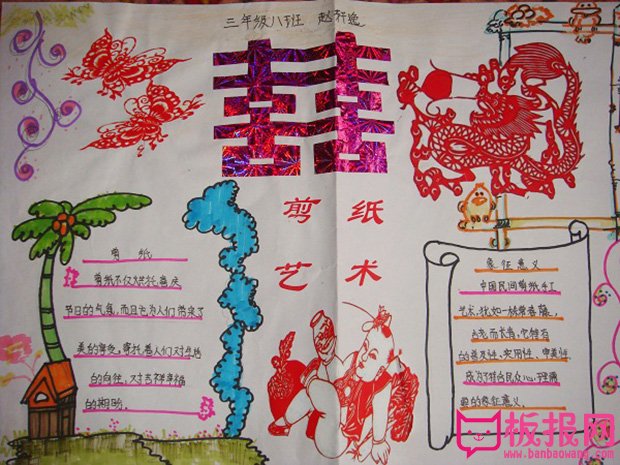 三年级八班 赵轩逸
囍
剪纸
艺术
剪纸
剪纸不仅烘托喜庆
节日的气氛，而且也为人们带来了
美的享受，寄托着人们对生活
的自信，对吉祥幸福
的期盼。
象征意义
中国民间剪纸手工
艺术，犹如一株常春藤，
古老而长青，它特有
的普及性、实用性、审美性
成为了符合民众心理需
要的象征意义。
板报网
www.banbaowang.com